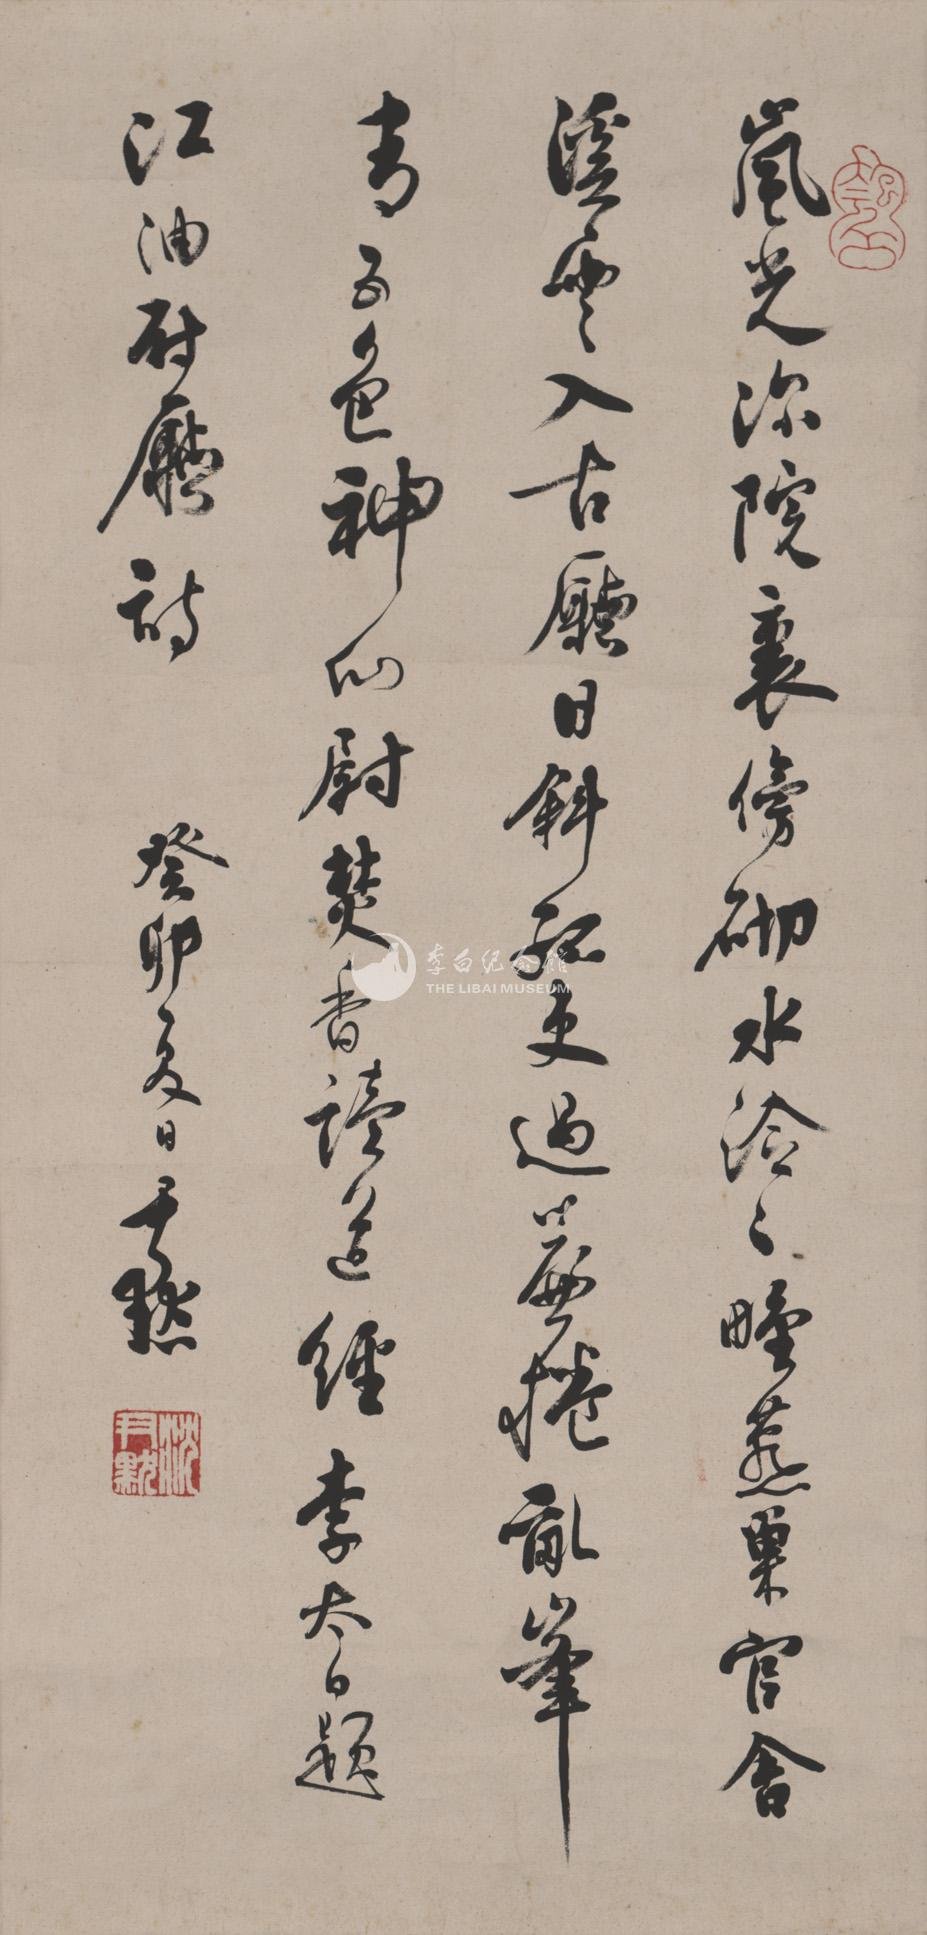 嵐光深院裏傍砌水泠〻野燕巢官舍
溪雲入古廳日斜孤吏過簾捲亂峯
青五色神仙尉焚香讀道經李太白題
江油尉廳詩 癸卯夏日尹默
沈尹默
李白纪念馆
THE LIBAI MUSEUM